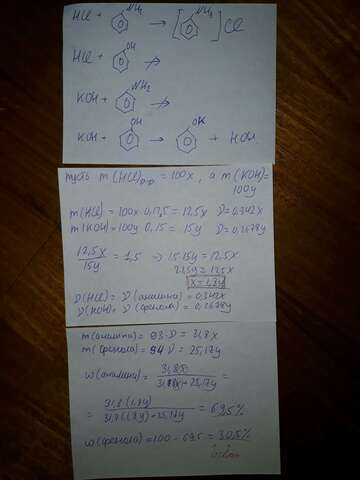 HCl + NH₂ → [NH₃]Cl
HCl + OH ↛
KOH + NH₂ ↛
KOH + OH → OK + HOH
пусть m(HCl)р-р = 100x, а m(KOH) =
100y
m(HCl) = 100x · 0,125 = 12,5x ν = 0,342x
m(KOH) = 100y · 0,15 = 15y ν = 0,2678y
12,5x / 15y = 1,5 → 1,5·15y = 12,5x
22,5y = 12,5x
x = 1,8y
ν(HCl) = ν(анилина) = 0,342x
ν(KOH) = ν(фенола) = 0,2678y
m(анилина) = 93·ν = 31,8x
m(фенола) = 94·ν = 25,17y
w(анилина) = 31,8x / 31,8x + 25,17y =
= 31,8·(1,8y) / 31,8·(1,8y) + 25,17y = 69,5%
w(фенола) = 100 - 69,5 = 30,5%